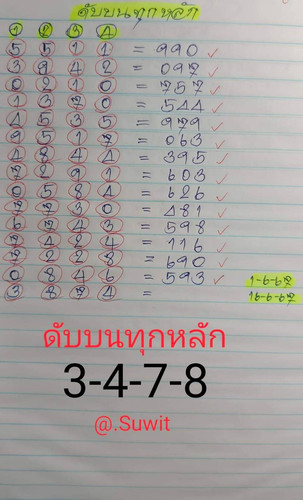 ดับบนทุกหลัก
1 2 3 4
5 5 1 1 = 990 ✓
3 9 4 2 = 097 ✓
0 2 1 0 = 757 ✓
1 3 7 0 = 544 ✓
4 5 3 5 = 979 ✓
9 5 1 7 = 063 ✓
4 8 4 4 = 395 ✓
7 2 9 1 = 603 ✓
0 5 8 4 = 626 ✓
7 7 3 0 = 481 ✓
6 7 4 3 = 598 ✓
7 4 2 4 = 116 ✓
7 2 2 8 = 690 ✓
0 8 4 6 = 593 ✓
1-6-67
3 8 7 4 =
16-6-67
ดับบนทุกหลัก
3-4-7-8
@.Suwit